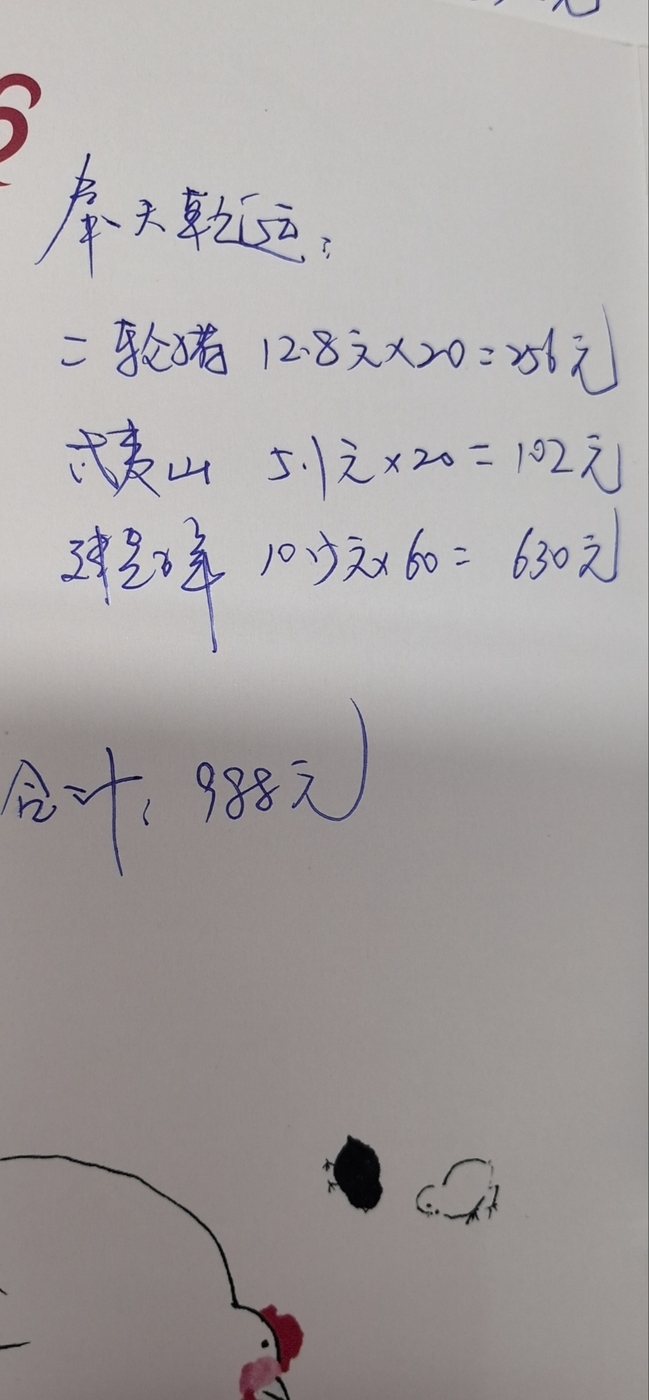 奉天乾运:
二轮猪 12.8元×20=256元
武夷山 5.1元×20=102元
建80年 10.5元×60= 630元
合计: 988元